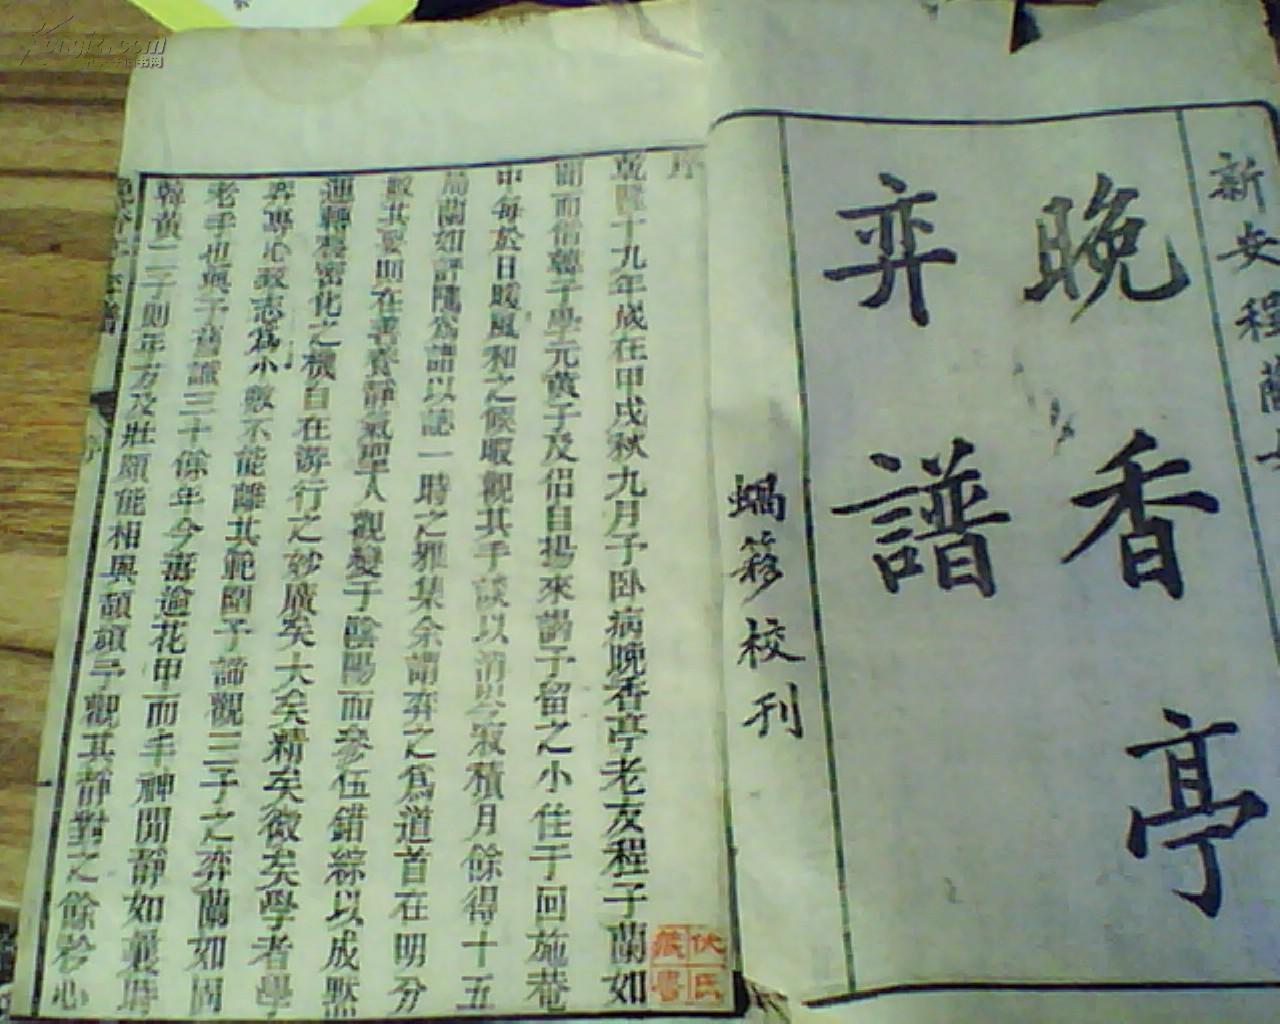 新安程蘭
晚香亭
弈譜
蝸簃校刊
序
乾隆十九年歲在甲戌秋九月予卧病晚香亭老友程子蘭如
聞而偕韓子學元黃子及侶自揚來謁予留之小住于回施菴
中每於日暖風和之候暇觀其手談以消岑寂積月餘得十五
局蘭如評隲為譜以誌一時之雅集余謂弈之為道首在明分
數其要則在善養靜氣聖人觀變于陰陽而參伍錯綜以成默
運轉裝密化之機自在游行之妙廣矣大矣精矣微矣學者學
弈專心致志為小數不能離其範圍予諦觀三子之弈蘭如固
老手也與予舊識三十餘年今壽逾花甲而手神閒靜如曩時
韓黃二子則年方及壯頗能相與頡頏予觀其靜對之餘矜心
伏氏藏書